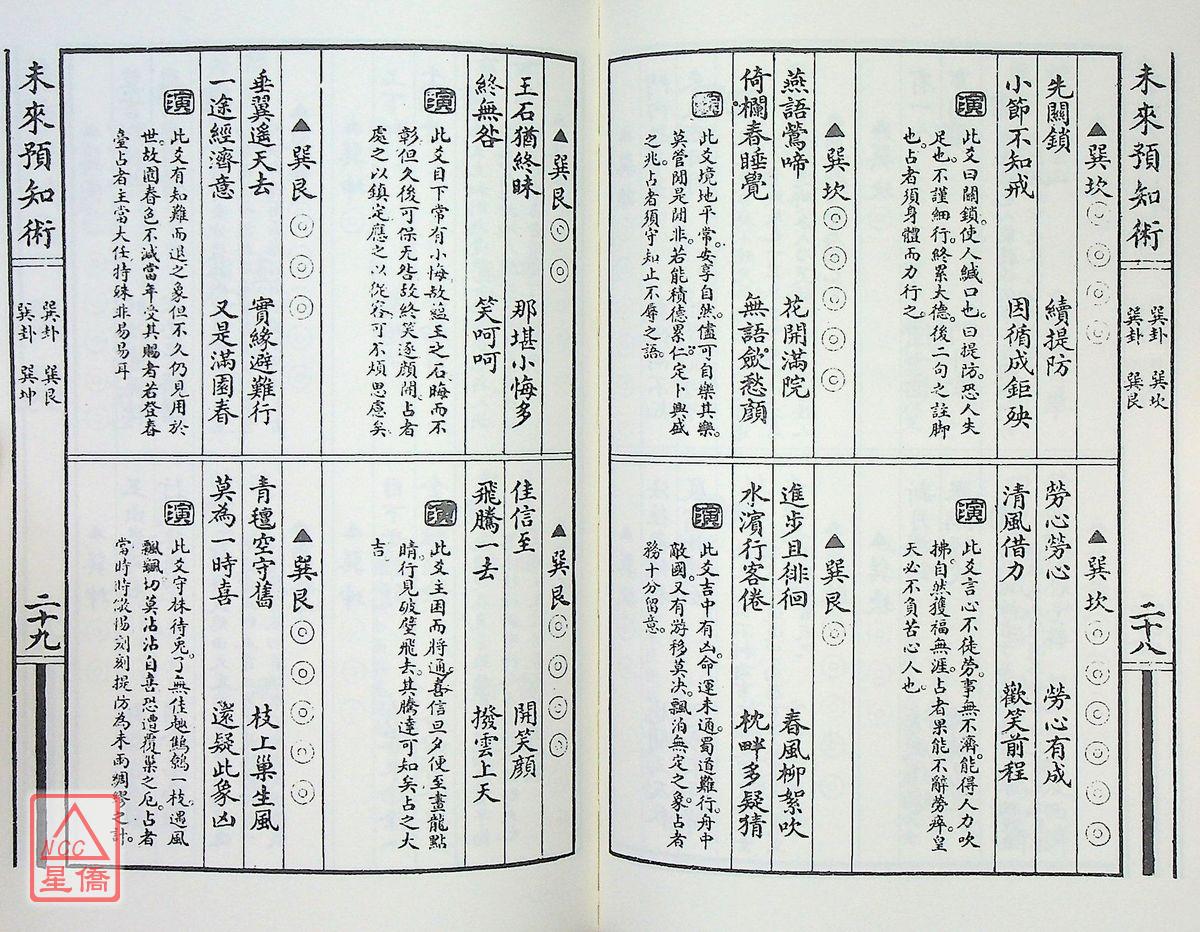 未來預知術
巽卦 巽坎
巽卦 巽艮
二十八
▲巽坎◎◎◎◎
先關鎖 續提防
小節不知戒 因循成鉅殃
演
此爻曰關鎖。使人緘口也。曰提防。恐人失
足也。不謹細行。終累大德。後二句之註脚
也。占者須身體而力行之。
▲巽坎◎◎◎◎◎
燕語鶯啼 花開滿院
倚欄春睡覺 無語斂愁顏
演
此爻境地平常。安享自然。儘可自樂其樂。
莫管閒是閒非。若能積德累仁。定卜興盛
之兆。占者須守知止不辱之語。
▲巽坎◎◎◎◎◎◎
勞心勞心 勞心有成
清風借力 歡笑前程
演
此爻言心不徒勞。事無不濟。能得人力吹
拂。自然獲福無涯。占者果能不辭勞瘁。皇
天必不負苦心人也。
▲巽艮◎
進步且徘徊 春風柳絮吹
水濱行客倦 枕畔多疑猜
演
此爻吉中有凶。命運未通。蜀道難行。舟中
敵國。又有游移莫決。飄泊無定之象。占者
務十分留意。
▲巽艮◎◎
玉石猶終昧 那堪小悔多
終無咎 笑呵呵
演
此爻目下常有小悔。故蘊玉之石。晦而不
彰。但久後可保无咎。故終笑逐顏開。占者
處之以鎮定。應之以從容。可不煩思慮矣。
▲巽艮◎◎◎
垂翼遙天去 實緣避難行
一途經濟意 又是滿園春
演
此爻有知難而退之象。但不久仍見用於
世。故園春色。不減當年。受其賜者。若登春
臺。占者主當大任。持殊非易易耳
▲巽艮◎◎◎◎
佳信至 開笑顏
飛騰一去 撥雲上天
演
此爻主困而將通。喜信旦夕便至。畫龍點
睛。行見破壁飛去。其騰達可知矣。占之大
吉
▲巽艮◎◎◎◎◎
青氈空守舊 枝上巢生風
莫為一時喜 還疑此象凶
演
此爻守株待兔。了無佳趣。鷦鷯一枝。遇風
飄飄。切莫沾沾自喜。恐遭覆巢之厄。占者
當時時儆惕。刻刻提防。為未雨綢繆之計。
未來預知術
巽卦 巽艮
巽卦 巽坤
二十九
NCC
星僑